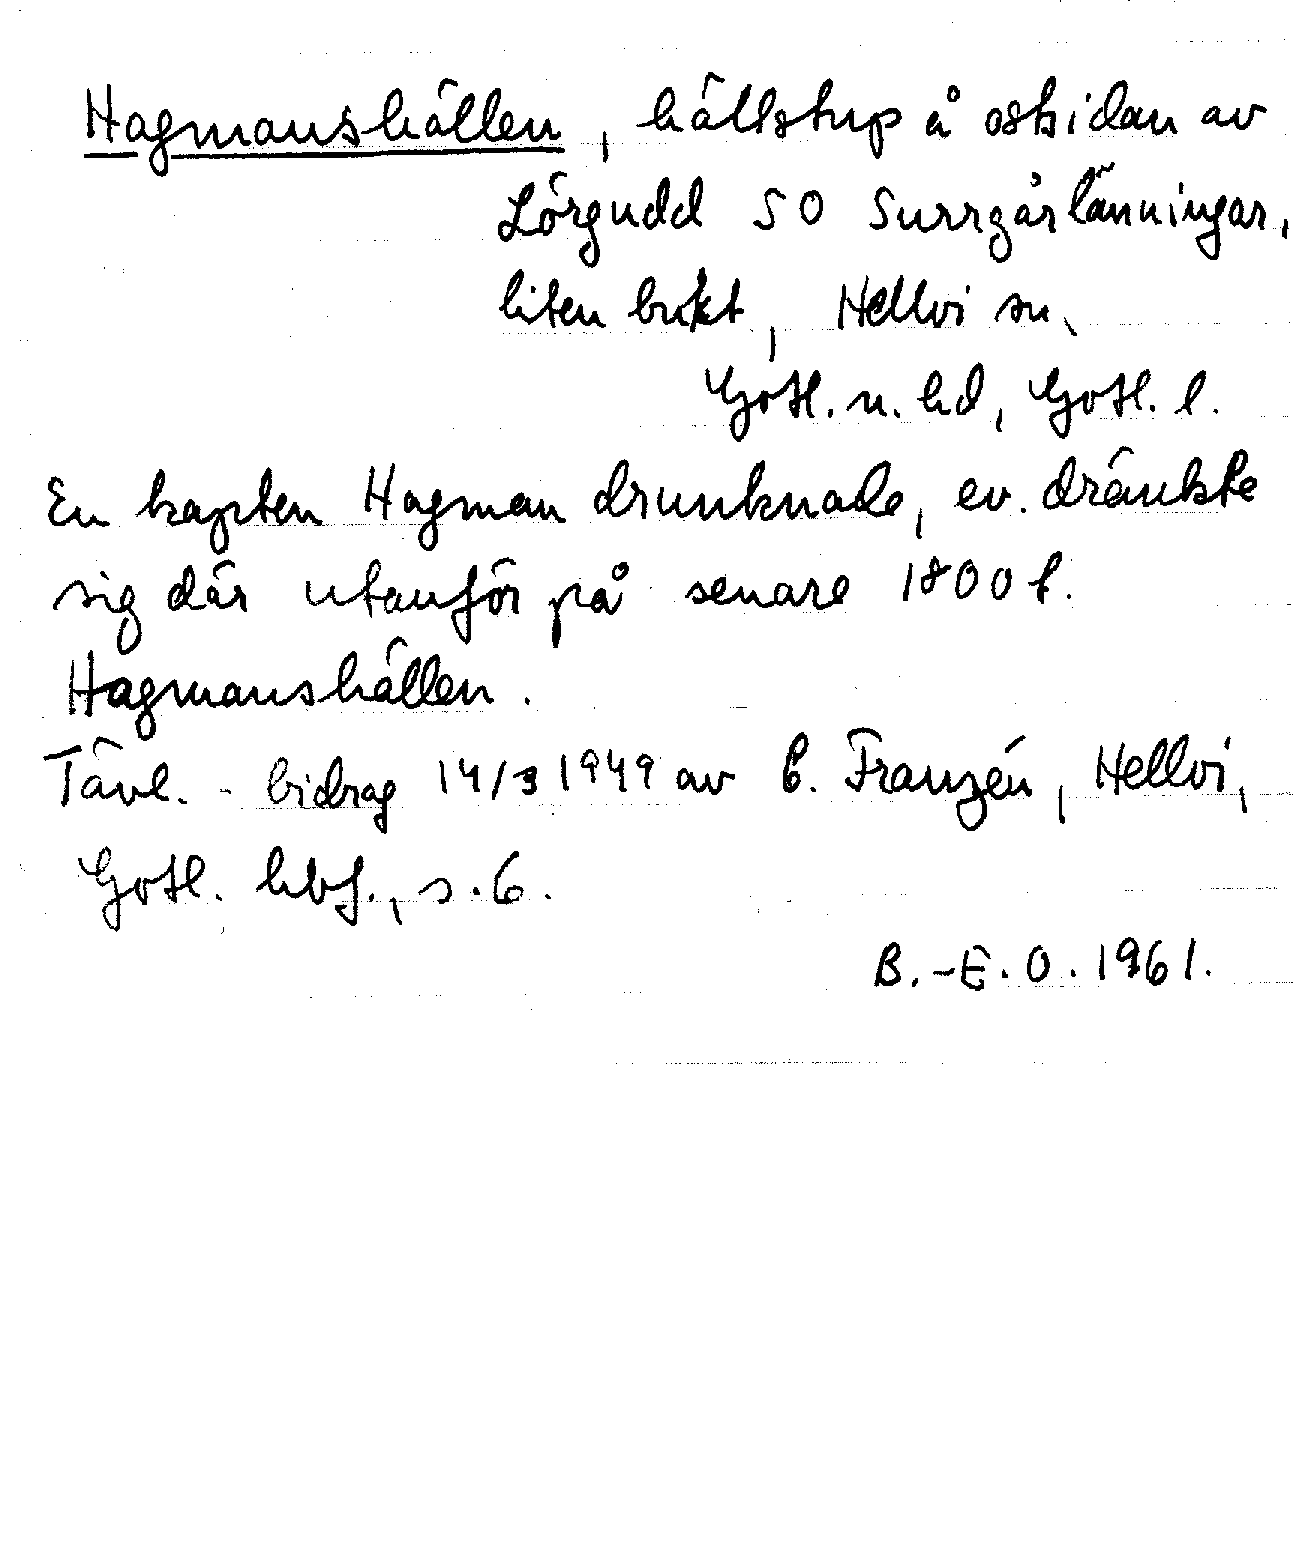 Hagmanshällen, hällstup å östsidan av
Lörgudd SO Surrgårlänningar,
liten bukt, Hellvi sn,
Gotl. n. hd, Gotl. l.
En kapten Hagman drunknade, ev. dränkte
sig där utanför på senare 1800 t.
Hagmanshällen.
Tävl. - bidrag 14/3 1949 av B. Franzén, Hellvi,
Gotl. hbf., s. 6.
B.-E. O. 1961.